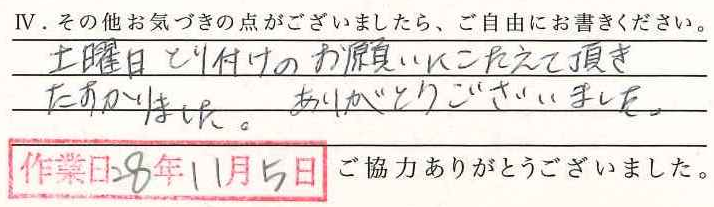 Ⅳ．その他お気づきの点がございましたら、ご自由にお書きください。
土曜日とり付けのお願いにこたえて頂き
たすかりました。ありがとうございました。
作業日28年11月5日 ご協力ありがとうございました。